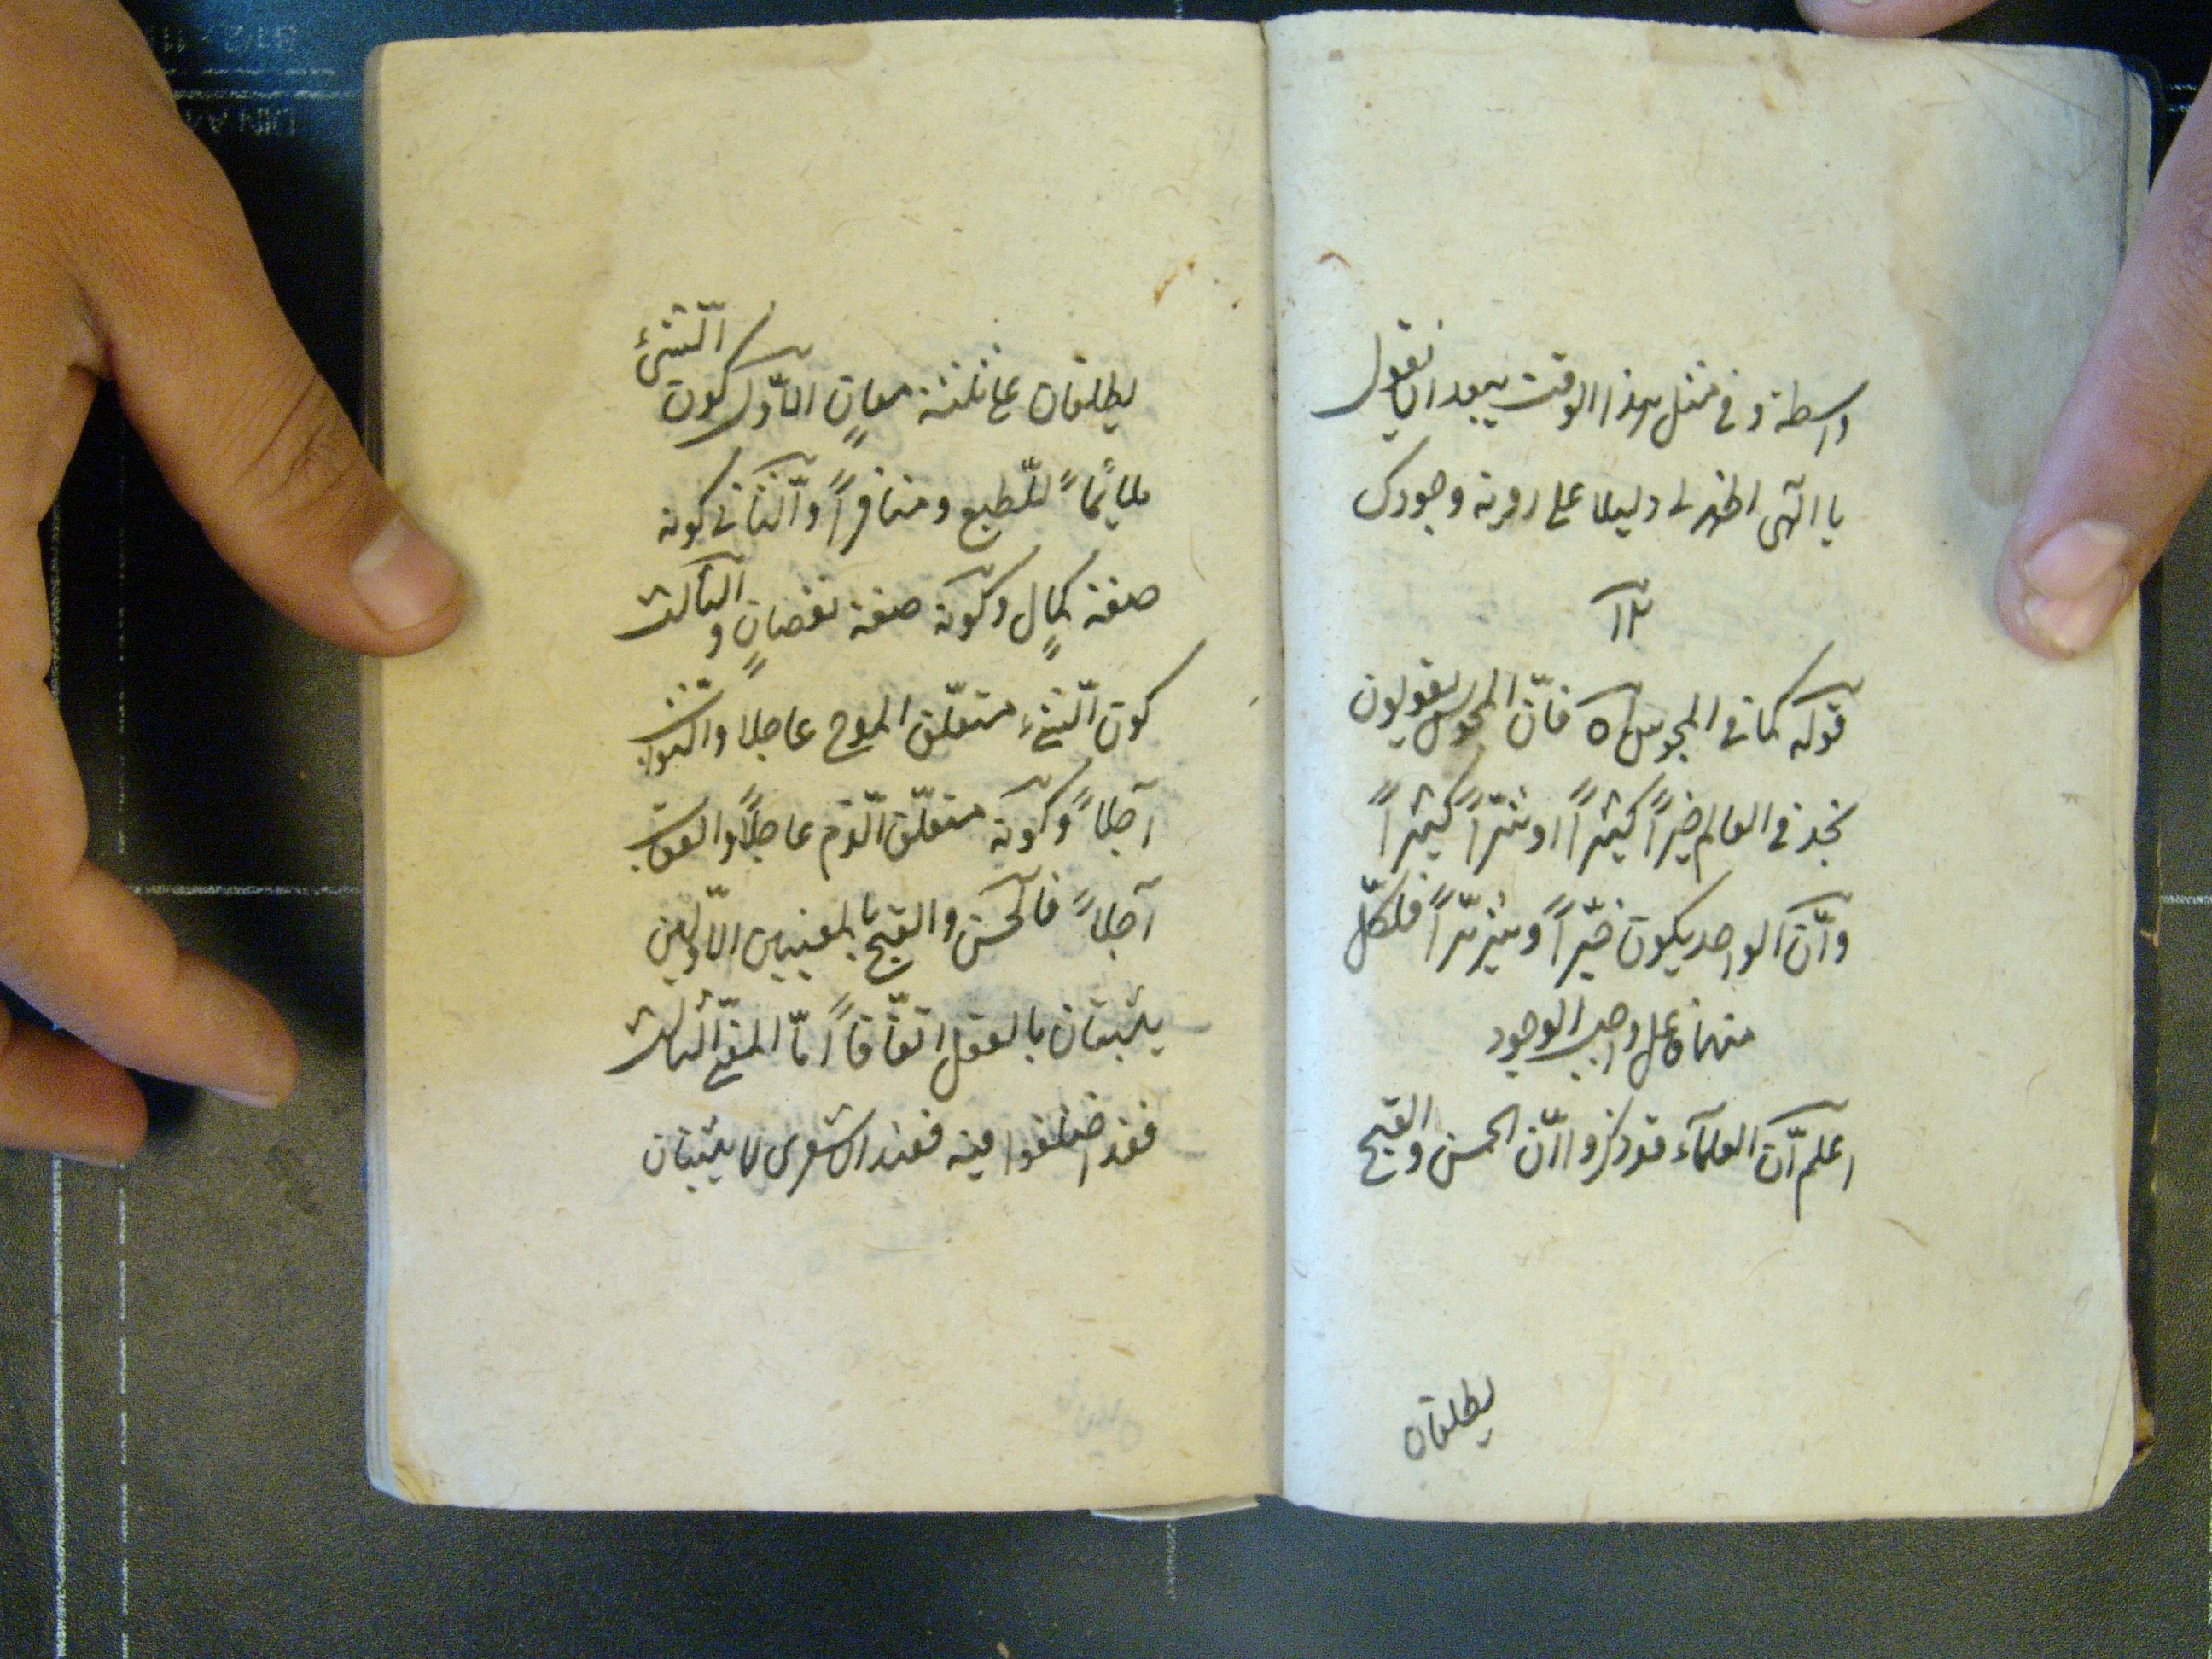 واسطة وفی مثل هذا الوقت یبعد ان یقول
یا الٓهی اظهر لی دلیلا علی وجودک
١٢
قوله کما فی المجوس ه فانّ المجوس یقولون
نجد فی العالم خیراً کثیراً وشرّاً کثیراً
وانّ الواحد یکون خیّراً وشرّیراً فلکلّ
منهما فاعل واجب الوجود
اعلم انّ العلمآء قد ذکروا انّ الحسن والقبح
یطلقان
یطلقان علی ثلثة معانٍ الاوّل کون الشّیئ
ملایماً للطبع ومنافراً والثّانی کونه
صفة کمالٍ وکونه صفة نقصانٍ والثالث
کون الشّیئ متعلّق المدح عاجلا والثواب
آجلاً وکونه متعلّق الذّم عاجلاً والعقاب
آجلاً فالحسن والقبح بالمعنیین الاوّلین
یثبتان بالعقل اتّفاقاً امّا المعنی الثّالث
فقد اختلفوا فیه فعند الاشعری لا یثبتان